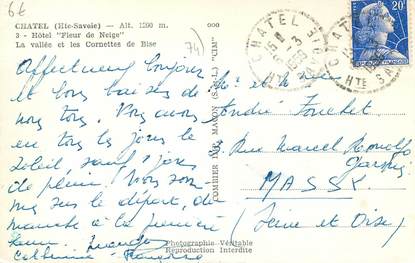 6€
CHATEL (Hte-Savoie) — Alt. 1200 m.
3 - Hôtel "Fleur de Neige"
La vallée et les Cornettes de Bise
74
000
20F
CHATEL
HTE SAVOIE
Affectueux bonjour
et bons baisers de
nous tous. Nous avons
eu tous les jours le
soleil, sauf 1 jour
de pluie. Nous som-
mes sur le départ, di-
manche à la première
heure.
Catherine
COMBIER IMP. MACON (S.-&-L.) "CIM"
Photographie Véritable
Reproduction Interdite
Mr et Mme
André Fouchet
Rue Marcel
MASSY.
(Seine et Oise)